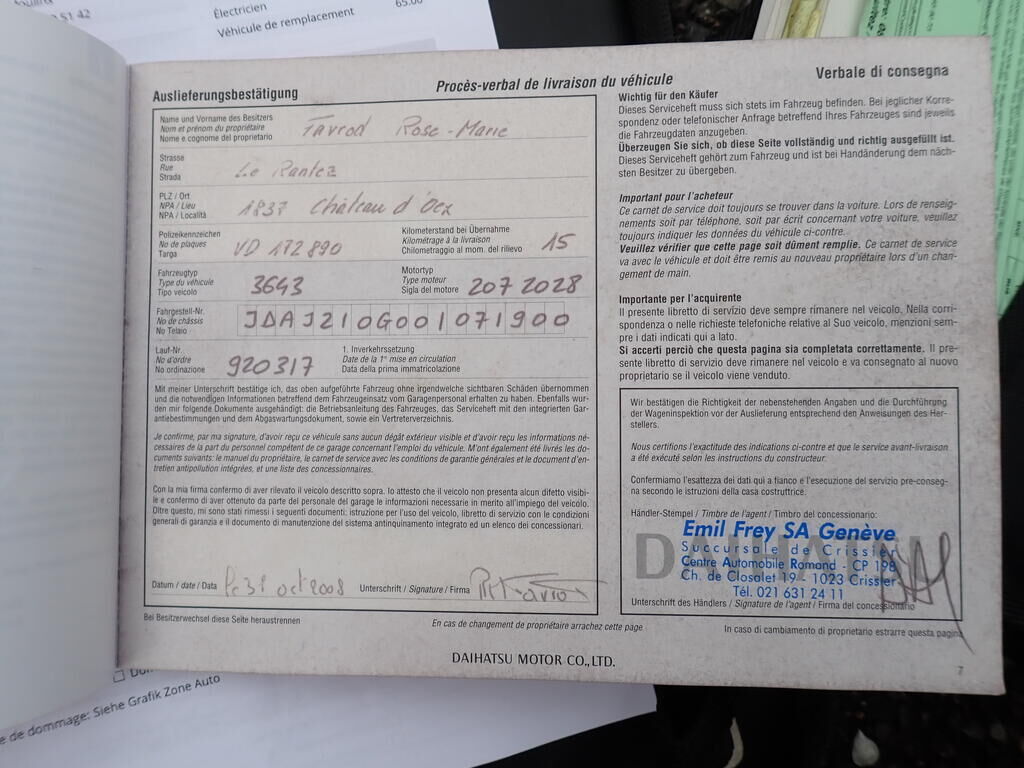 51 42
Électricien
Véhicule de remplacement 65.00
Auslieferungsbestätigung
Procès-verbal de livraison du véhicule
Verbale di consegna
Name und Vorname des Besitzers
Nom et prénom du propriétaire
Nome e cognome del proprietario
Favrod Rose-Marie
Strasse
Rue
Strada
Le Rantez
PLZ / Ort
NPA / Lieu
NPA / Località
1837 Château d'Oex
Polizeikennzeichen
No de plaques
Targa
VD 172 890
Kilometerstand bei Übernahme
Kilométrage à la livraison
Chilometraggio al mom. del rilievo
15
Fahrzeugtyp
Type du véhicule
Tipo veicolo
3643
Motortyp
Type moteur
Sigla del motore
207 2028
Fahrgestell-Nr.
No de châssis
No Telaio
JDAJ210G001071900
Lauf-Nr.
No d'ordre
No ordinazione
920317
1. Inverkehrssetzung
Date de la 1re mise en circulation
Data della prima immatricolazione
Mit meiner Unterschrift bestätige ich, das oben aufgeführte Fahrzeug ohne irgendwelche sichtbaren Schäden übernommen
und die notwendigen Informationen betreffend dem Fahrzeugeinsatz vom Garagenpersonal erhalten zu haben. Ebenfalls wur-
den mir folgende Dokumente ausgehändigt: die Betriebsanleitung des Fahrzeuges, das Serviceheft mit den integrierten Gar-
antiebestimmungen und dem Abgaswartungsdokument, sowie ein Vertreterverzeichnis.
Je confirme, par ma signature, d'avoir reçu ce véhicule sans aucun dégât extérieur visible et d'avoir reçu les informations né-
cessaires de la part du personnel compétent de ce garage concernant l'emploi du véhicule. M'ont également été livrés les do-
cuments suivants: le manuel du propriétaire, le carnet de service avec les conditions de garantie générales et le document d'en-
tretien antipollution intégrées, et une liste des concessionnaires.
Con la mia firma confermo di aver rilevato il veicolo descritto sopra. Io attesto che il veicolo non presenta alcun difetto visibi-
le e confermo di aver ottenuto da parte del personale del garage le informazioni necessarie in merito all'impiego del veicolo.
Oltre questo, mi sono stati rimessi i seguenti documenti: istruzione per l'uso del veicolo, libretto di servizio con le condizioni
generali di garanzia e il documento di manutenzione del sistema antinquinamento integrato ed un elenco dei concessionari.
Datum / date / Data
31 oct 2008
Unterschrift / Signature / Firma
Bei Besitzerwechsel diese Seite heraustrennen
En cas de changement de propriétaire arrachez cette page
In caso di cambiamento di proprietario estrarre questa pagina
DAIHATSU MOTOR CO., LTD.
7
Wichtig für den Käufer
Dieses Serviceheft muss sich stets im Fahrzeug befinden. Bei jeglicher Korre-
spondenz oder telefonischer Anfrage betreffend Ihres Fahrzeuges sind jeweils
die Fahrzeugdaten anzugeben.
Überzeugen Sie sich, ob diese Seite vollständig und richtig ausgefüllt ist.
Dieses Serviceheft gehört zum Fahrzeug und ist bei Handänderung dem näch-
sten Besitzer zu übergeben.
Important pour l'acheteur
Ce carnet de service doit toujours se trouver dans la voiture. Lors de renseig-
nements soit par téléphone, soit par écrit concernant votre voiture, veuillez
toujours indiquer les données du véhicule ci-contre.
Veuillez vérifier que cette page soit dûment remplie. Ce carnet de service
va avec le véhicule et doit être remis au nouveau propriétaire lors d'un chan-
gement de main.
Importante per l'acquirente
Il presente libretto di servizio deve sempre rimanere nel veicolo. Nella corri-
spondenza o nelle richieste telefoniche relative al Suo veicolo, menzioni sem-
pre i dati indicati qui a lato.
Si accerti perciò che questa pagina sia completata correttamente. Il pre-
sente libretto di servizio deve rimanere nel veicolo e va consegnato al nuovo
proprietario se il veicolo viene venduto.
Wir bestätigen die Richtigkeit der nebenstehenden Angaben und die Durchführung
der Wageninspektion vor der Auslieferung entsprechend den Anweisungen des Her-
stellers.
Nous certifions l'exactitude des indications ci-contre et que le service avant-livraison
a été exécuté selon les instructions du constructeur.
Confermiamo l'esattezza dei dati qui a fianco e l'esecuzione del servizio pre-conseg-
na secondo le istruzioni della casa costruttrice.
Händler-Stempel / Timbre de l'agent / Timbro del concessionario:
DAIHATSU
Emil Frey SA Genève
Succursale de Crissier
Centre Automobile Romand - CP 198
Ch. de Closalet 19 - 1023 Crissier
Tél. 021 631 24 11
Unterschrift des Händlers / Signature de l'agent / Firma del concessionario
e de dommage: Siehe Grafik Zone Auto